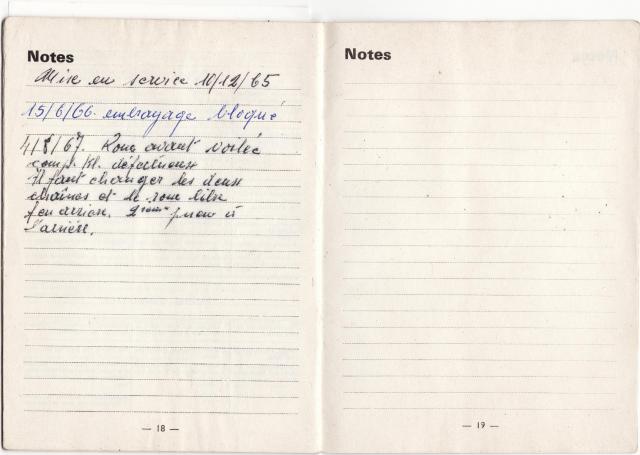 Notes
Mise en service 10/12/65
15/6/66. embrayage bloqué
4/8/67. Roue avant voilée
comp. Kl. défectueux
Il faut changer les deux
chaînes et la roue libre
feu arrière. 2ième pneu à
l'arrière.
— 18 —
Notes
— 19 —